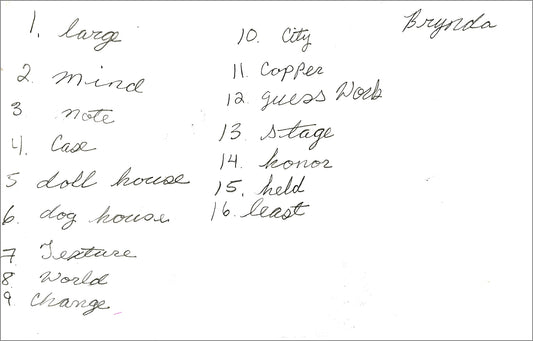 Brynda
1. large
2. mind
3 note
4. Case
5 doll house
6. dog house
7 Texture
8 World
9 Change
10. City
11. Copper
12. guess Work
13. stage
14. honor
15. held
16. least